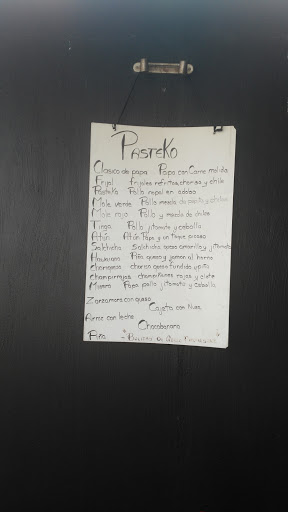 PASTEKO
Clasico de papa Papa con Carne molida
Frijol frijoles refritos, chorizo y chile
Pasteko Pollo nopal en adobo
Mole verde Pollo mezcla de y chiles
Mole rojo Pollo y mezcla de chiles
Tinga Pollo jitomate y cebolla
Atún Atún Papa y un Toque picoso
Salchicha Salchicha queso amarillo y jitomate
Hawaiano Piña queso y jamon al horno
chorizo queso fundido y piña
champi rajas champiñones rajas y elote
Minero Papa pollo jitomate y cebolla
Zarzamora con queso
Cajeta con Nuez
Arroz con leche
Chocobanano
Piña